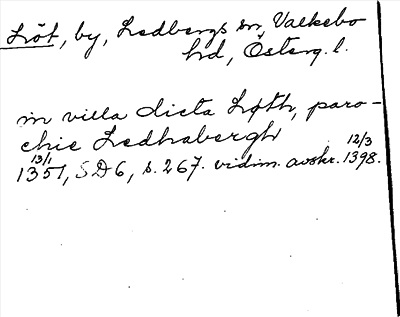 Löt, by, Ledbergs sn, Valkebo
hd, Österg. l.
in villa dicta Løth, paro-
chie Ledhabergh
13/1 1351, SD6, s. 267. vidim. avskr. 12/3 1398.